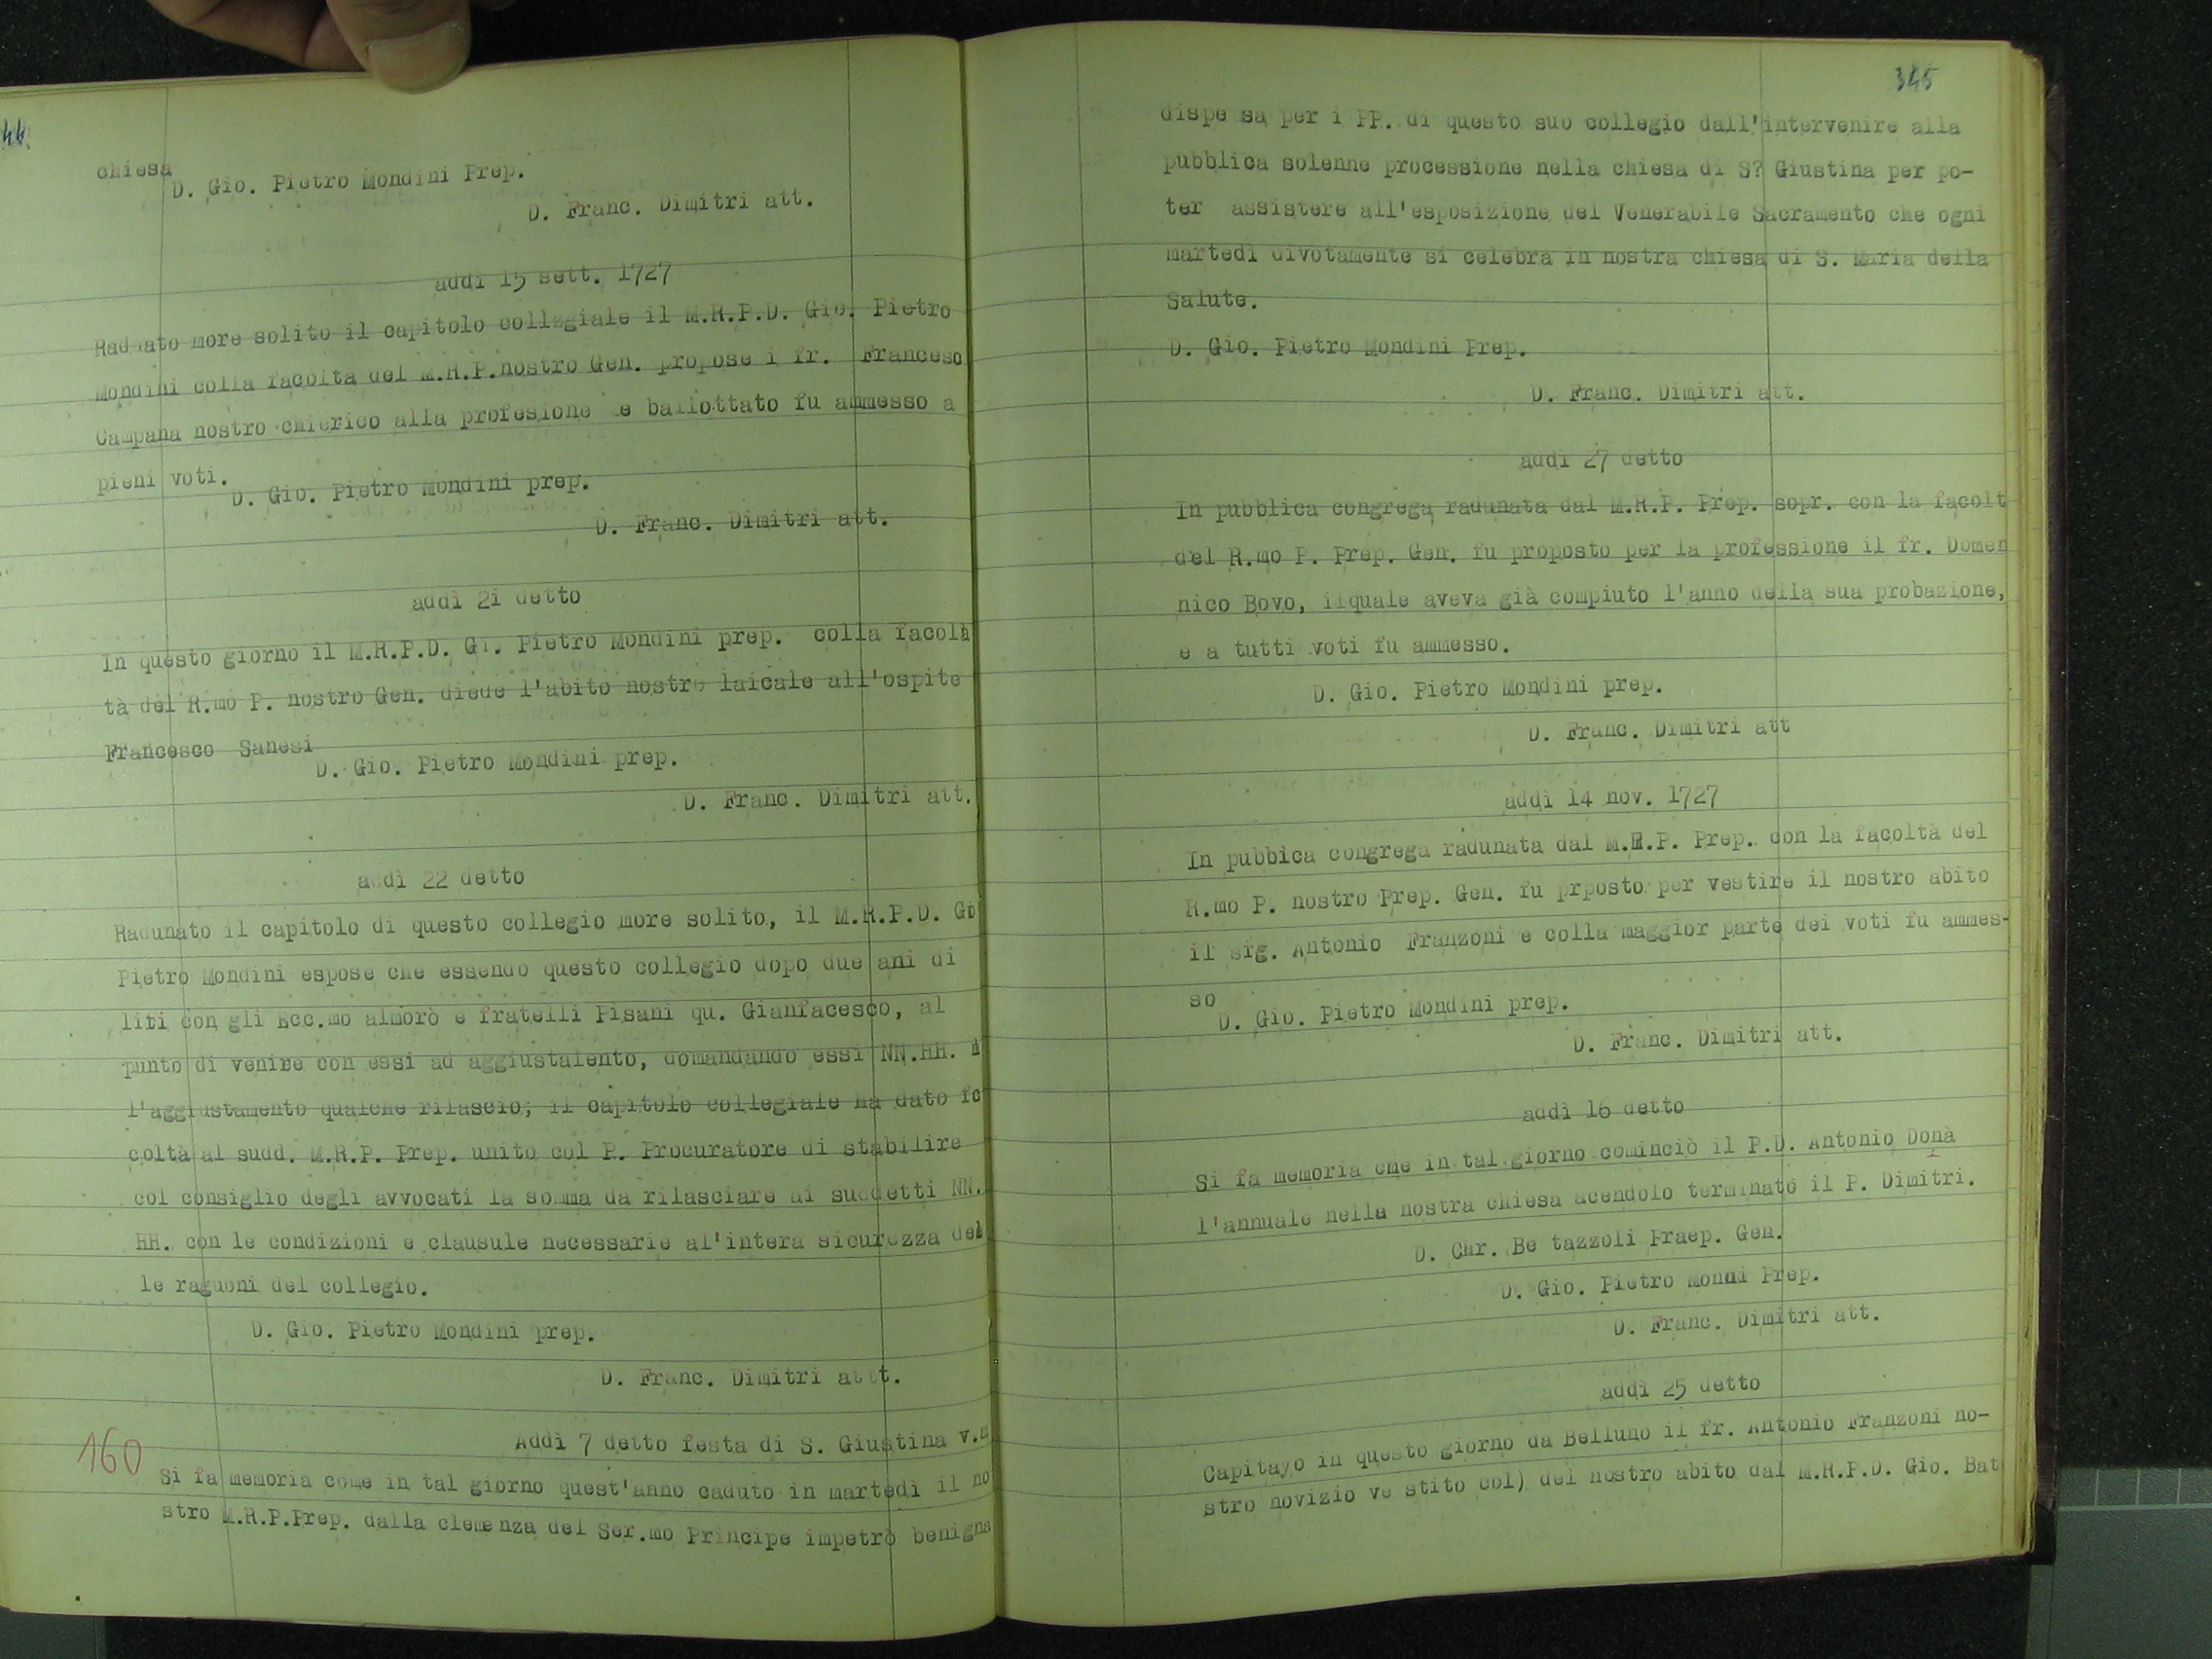 44
chiesa
D. Gio. Pietro Mondini Prep.
D. Franc. Dimitri att.
addì 15 sett. 1727
Radunato more solito il capitolo collegiale il M.R.P.D. Gio. Pietro
Mondini colla facoltà del M.R.P.nostro Gen. propose i fr. Francesc
Campana nostro chierico alla profesione e ballottato fu ammesso a
pieni voti.
D. Gio. Pietro Mondini prep.
D. Franc. Dimitri att.
addì 2i detto
In questo giorno il M.R.P.D. Gi. Pietro Mondini prep. colla facolà
tà del R.mo P. nostro Gen. diede l'abito nostro laicale all'ospite
Francesco Sanesi
D. Gio. Pietro Mondini prep.
D. Franc. Dimitri att.
addì 22 detto
Radunato il capitolo di questo collegio more solito, il M.R.P.D. Gi
Pietro Mondini espose che essendo questo collegio dopo due ani di
liti con gli Ecc.mo almorò e fratelli Pisani qu. Gianfacesco, al
punto di venire con essi ad aggiustalento, domandando essi NN.HH.
l'aggiustamento qualche rilascio; il capitolo collegiale ha dato fc
coltà al sudd. M.R.P. Prep. unito col P. Procuratore di stabilire
col consiglio degli avvocati la somma da rilasciare ai suddetti NN.
HH. con le condizioni e clausule necessarie al'intera sicurezza del
le raguoni del collegio.
D. Gio. Pietro Mondini prep.
D. Franc. Dimitri attt.
160
Addì 7 detto festa di S. Giustina v.m
Si fa memoria come in tal giorno quest'anno caduto in martedì il no
stro M.R.P.Prep. dalla clemenza del Ser.mo Principe impetrò benigna
345
dispe sa per i PP. di questo suo collegio dall'intervenire alla
pubblica solenne processione nella chiesa di S? Giustina per po-
ter assistere all'esposizione del Venerabile Sacramento che ogni
martedì divotamente si celebra in nostra chiesa di S. Maria della
Salute.
D. Gio. Pietro Mondini Prep.
D. Franc. Dimitri att.
addì 27 detto
In pubblica congrega radunata dal M.R.P. Prep. sopr. con la facolt
del R.mo P. Prep. Gen. fu proposto per la professione il fr. Domen
nico Bovo, ilquale aveva già compiuto l'anno della sua probazione,
e a tutti voti fu ammesso.
D. Gio. Pietro Mondini prep.
D. Franc. Dimitri att
addì 14 nov. 1727
In pubbica congrega radunata dal M.R.P. Prep. con la facoltà del
R.mo P. nostro Prep. Gen. fu prposto per vestire il nostro abito
il sig. Antonio Franzoni e colla maggior parte dei voti fu ammes-
so
D. Gio. Pietro Mondini prep.
D. Franc. Dimitri att.
addì 16 detto
Si fa memoria che in tal giorno cominciò il P.D. Antonio Donà
l'annuale nella nostra chiesa acendolo terminato il P. Dimitri.
D. Chr. Be tazzoli Praep. Gen.
D. Gio. Pietro Monni Prep.
D. Franc. Dimitri att.
addì 25 detto
Capitayo in questo giorno da Belluno il fr. Antonio Franzoni no-
stro novizio ve stito col) del nostro abito dal M.R.P.D. Gio. Bat